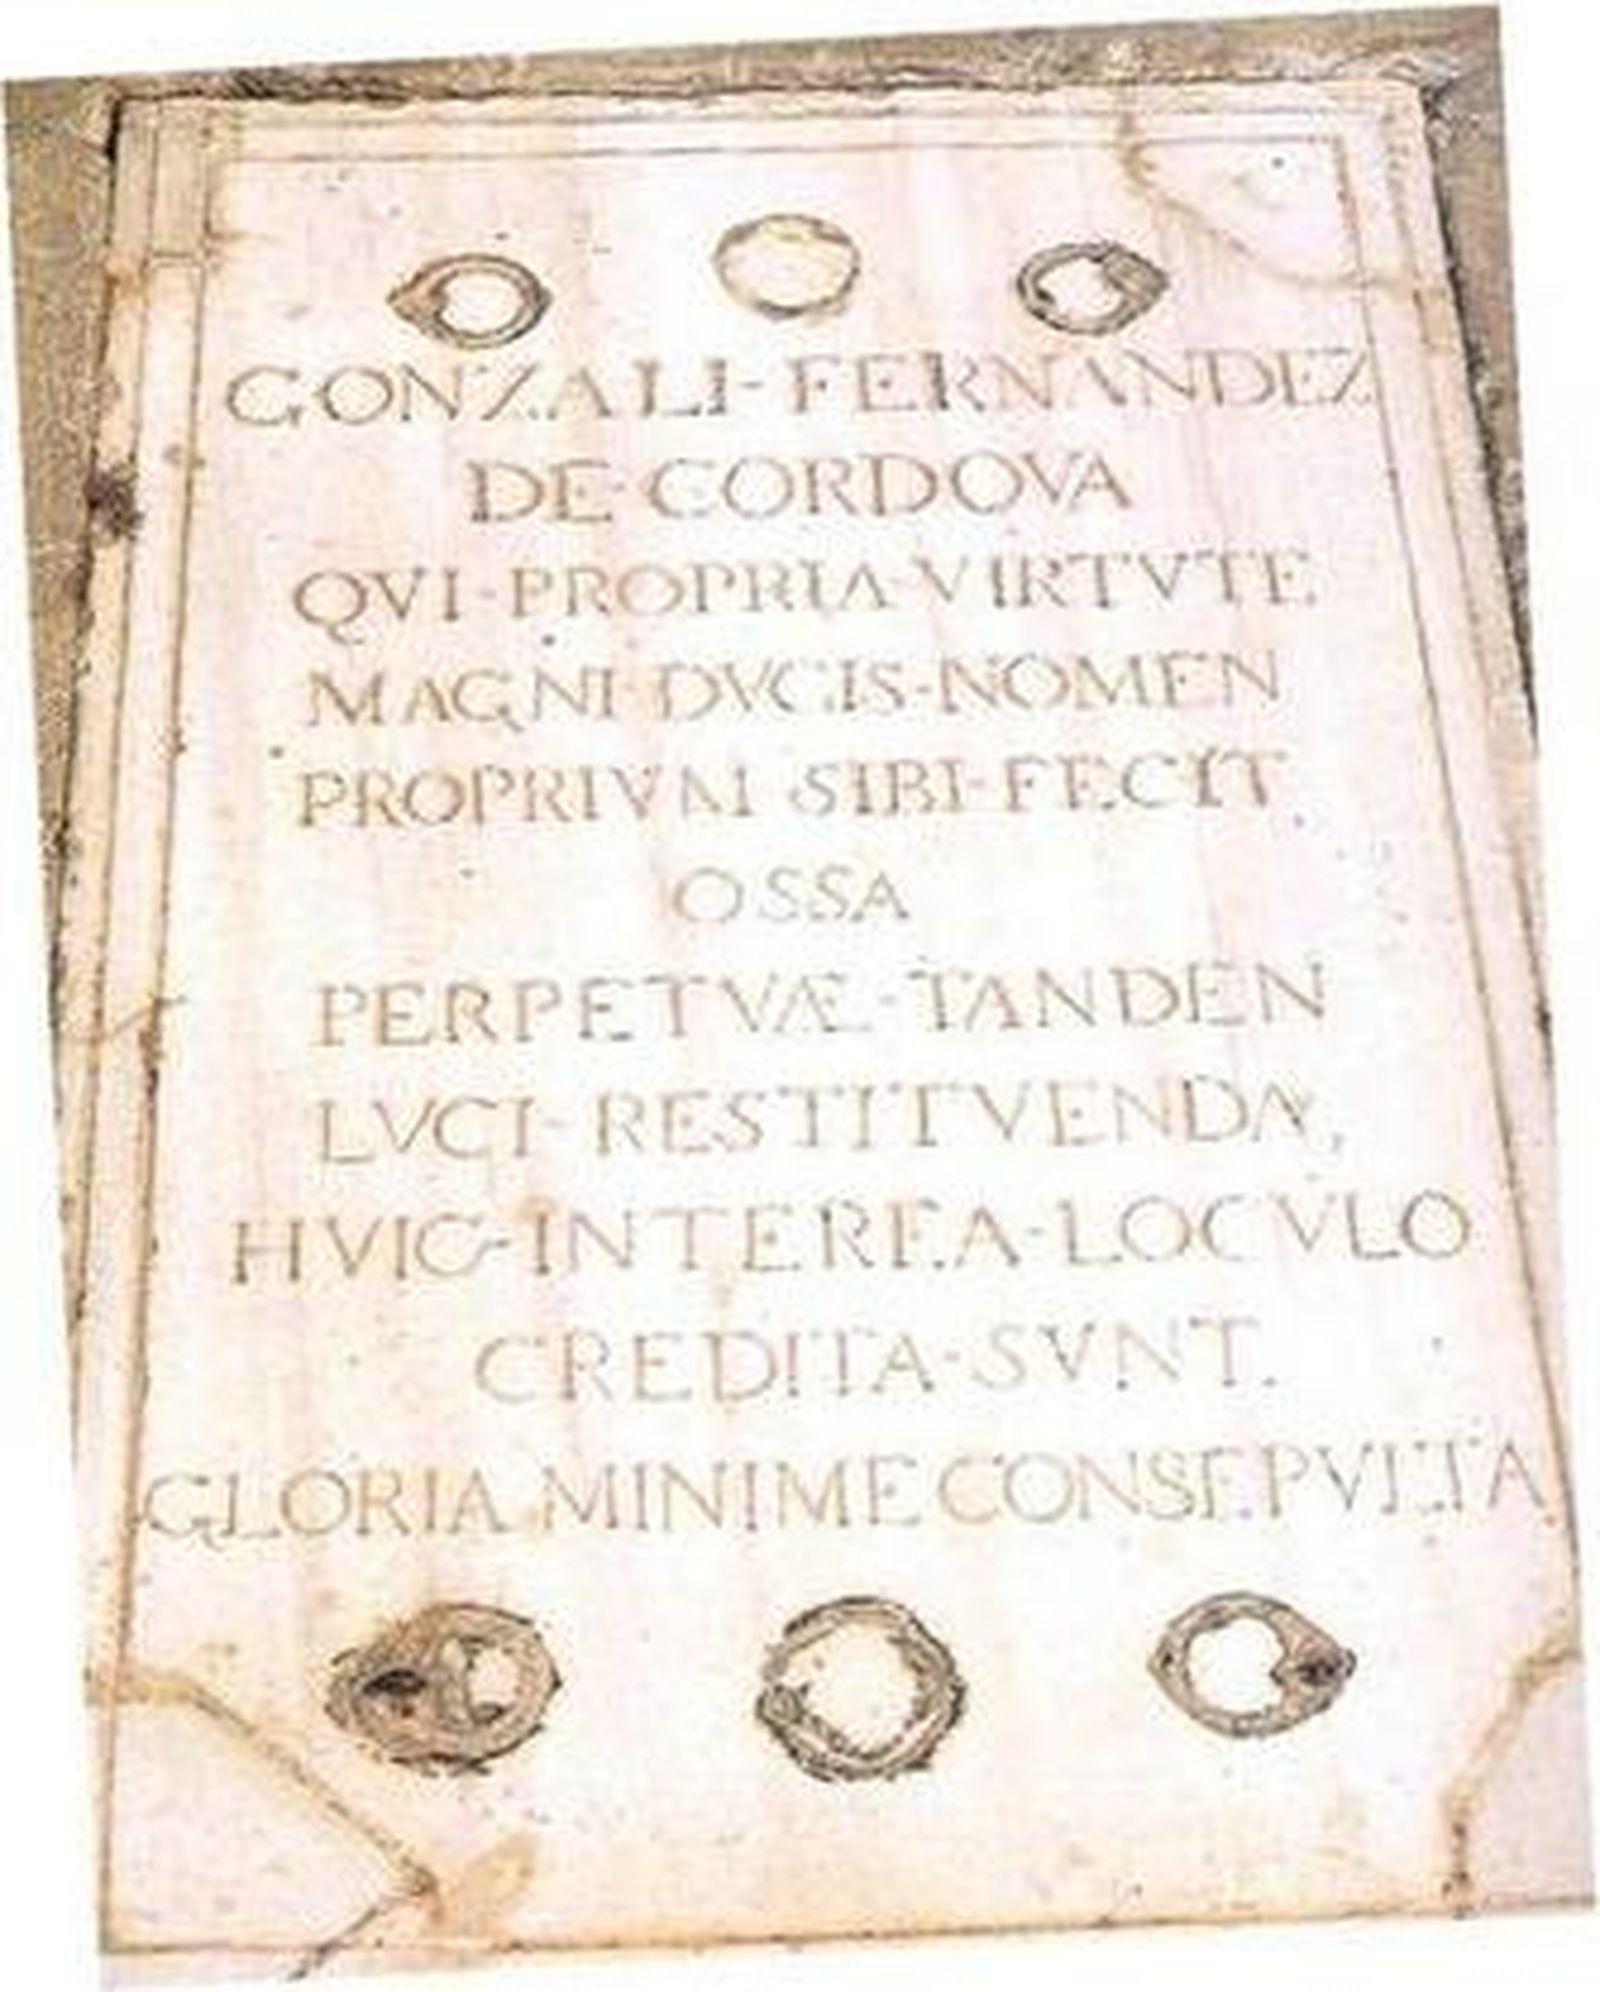 GONZALI-FERNANDEZ
DE·CORDOVA
QVI-PROPRIA·VIRTVTE
MAGNI·DVCIS-NOMEN
PROPRIVM SIBI-FECIT
OSSA
PERPETVÆ-TANDEN
LVCI-RESTITVENDA,
HVIC-INTEREA·LOCVLO
CREDITA·SVNT.
GLORIA MINIME CONSEPVLTA